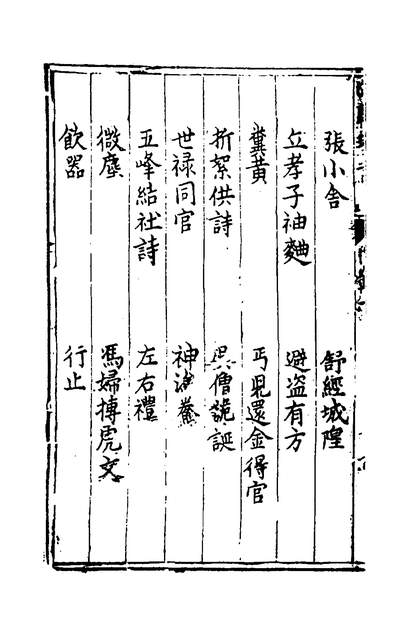 張小舍　舒經城隍
孝子袖麯　避盗有方
糞黄　丐児還金得官
折絮供詩　僧詭誕
世禄同官　神
五峰結社詩　左右禮
微塵　馮婦搏虎文
飲器　行止